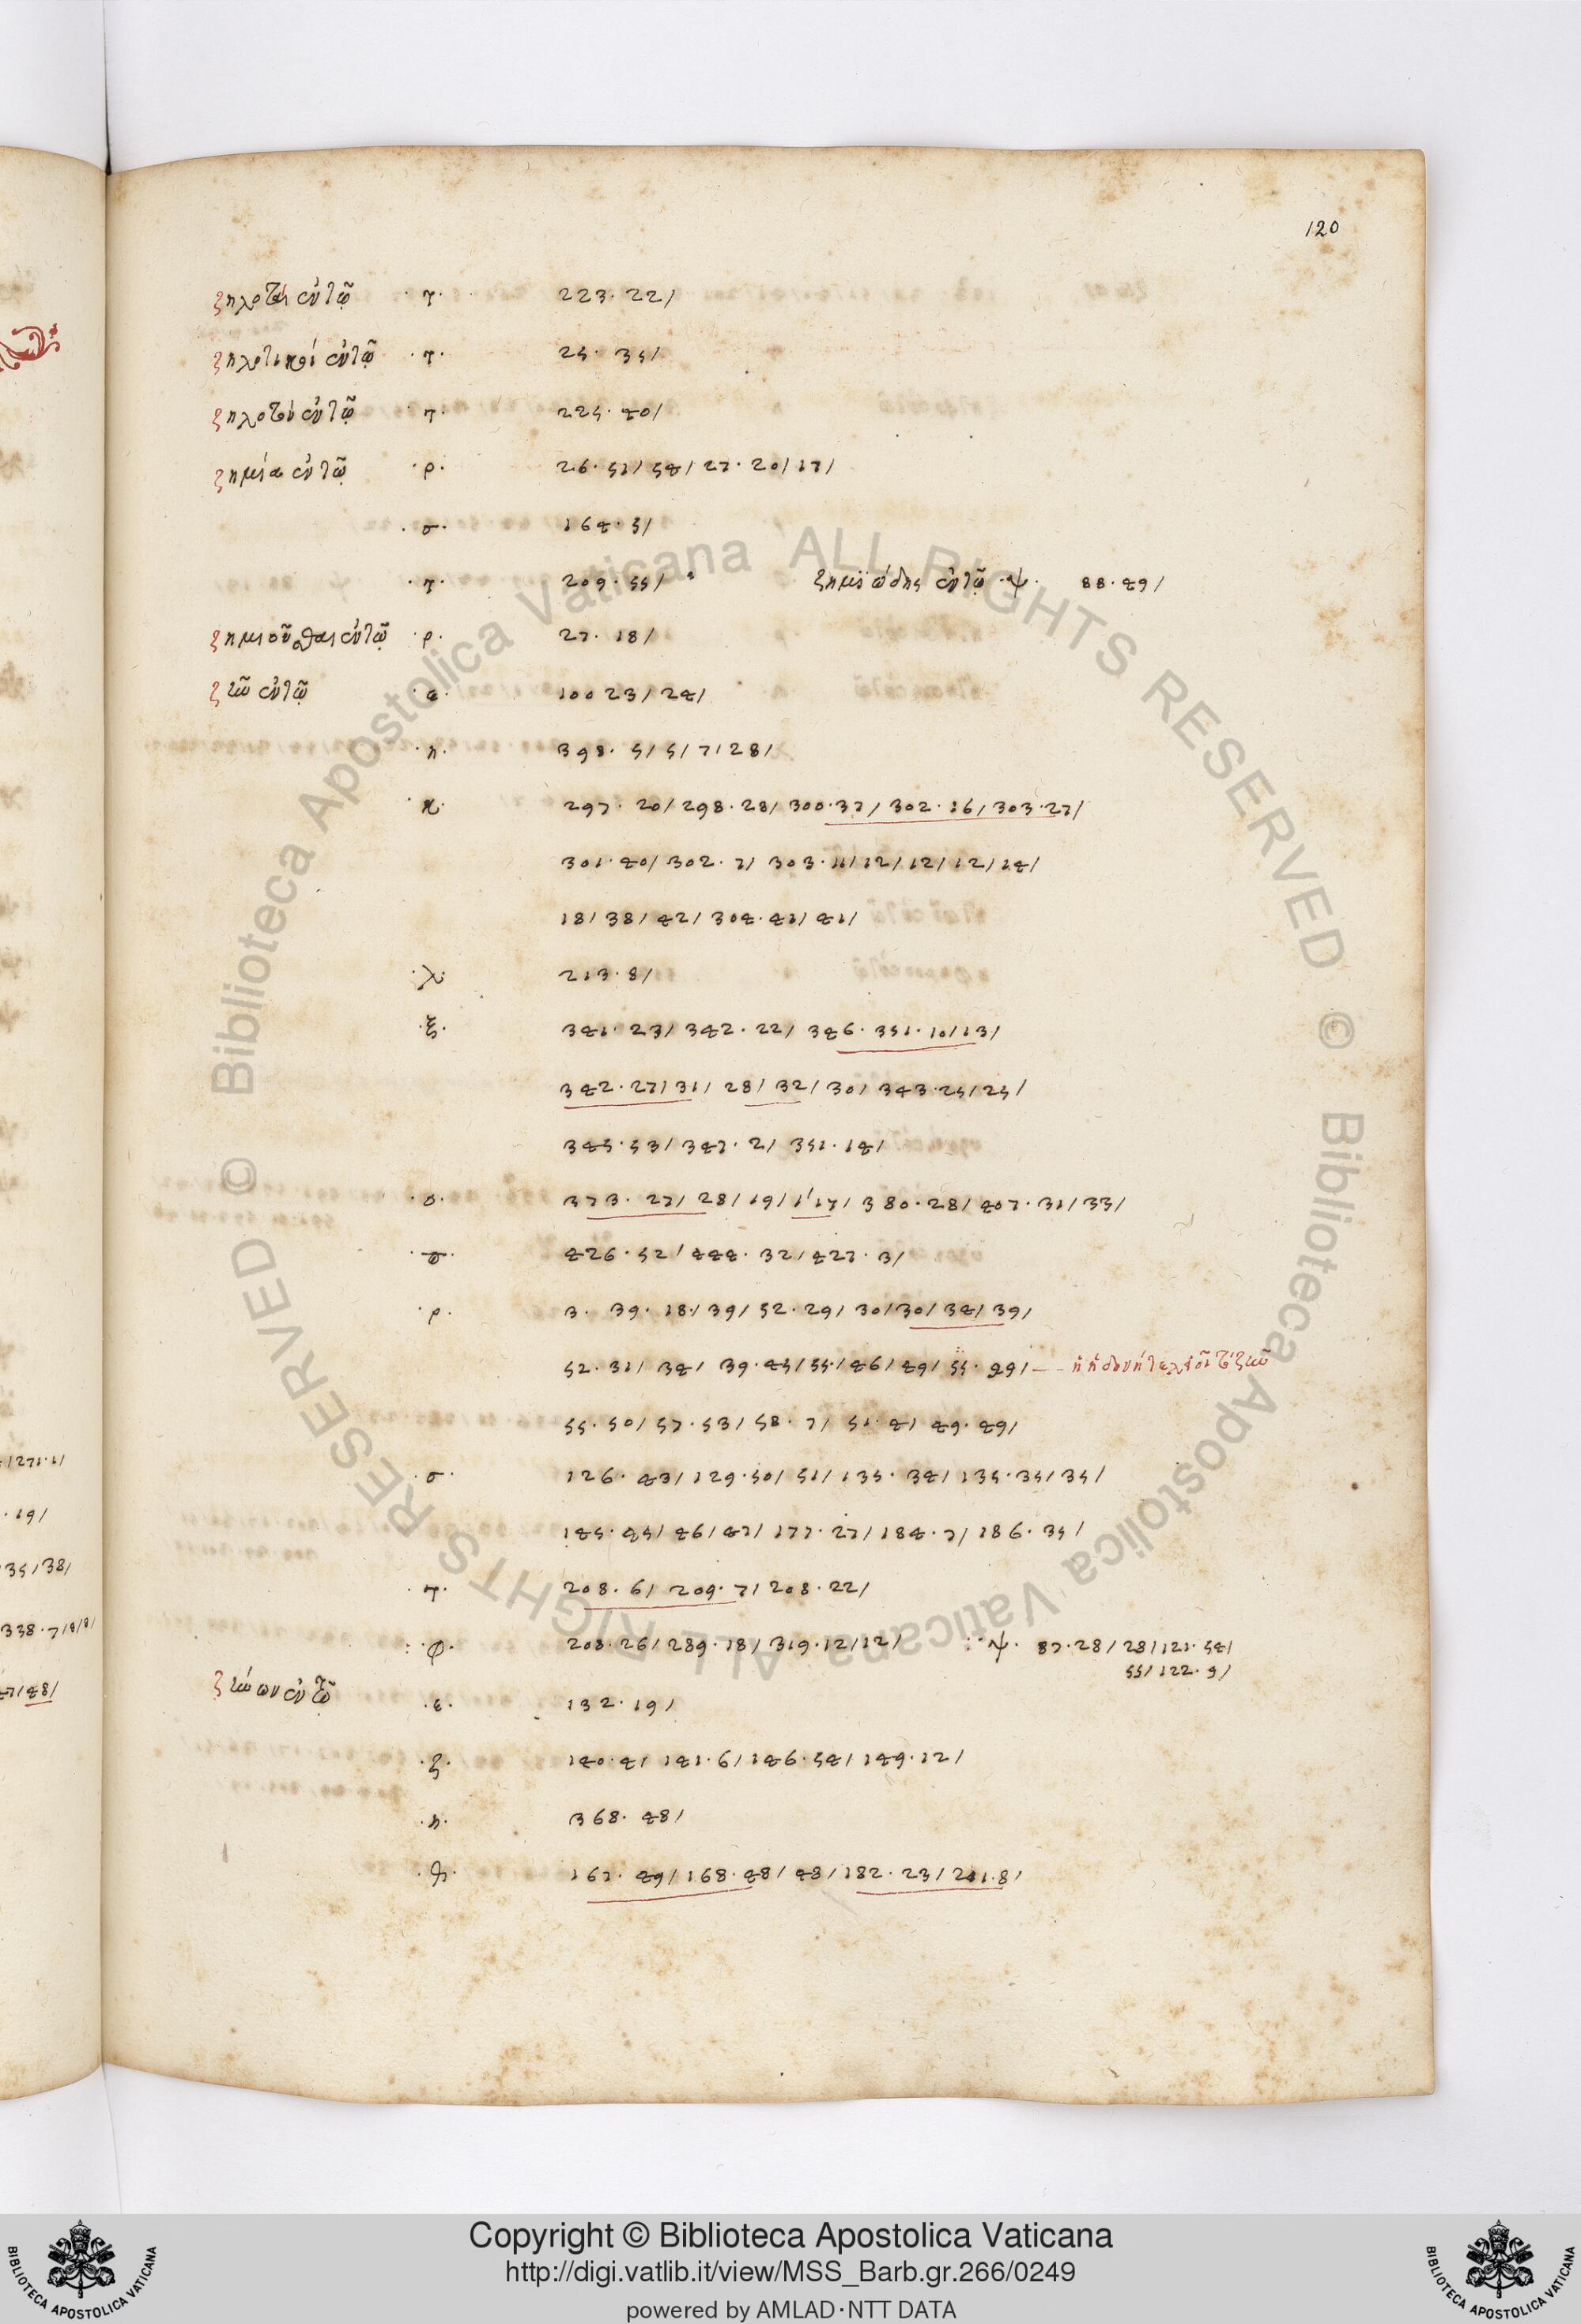 120
ζηλοταὶ ἐν τῷ ·τ· 223·22/
ζηλοτικοὶ ἐν τῷ ·τ· 25·35/
ζηλοτὺ ἐν τῷ ·τ· 225·40/
ζημία ἐν τῷ ·ρ· 26·51/54/27·20/17/
·σ· 164·5/
·τ· 209·55/ ζημϊώδης ἐν τῷ ·ψ· 88·49/
ζημιοῦσθαι ἐν τῷ ·ρ· 27·18/
ζῶ ἐν τῷ ·ε· 100 23/24/
·η· 398·5/5/7/28/
·κ· 297·20/298·28/300·37/302·16/303·27/
301·40/302·7/303·11/12/12/12/14/
18/38/42/304·41/41/
·λ· 213·8/
·ξ· 341·23/342·22/346·351·10/13/
342·27/31/28/32/30/343·25/25/
345·53/347·2/351·14/
·ο· 373·27/28/19/1/17/380·28/407·31/33/
·π· 426·52/444·32/427·3/
·ρ· 3·39·18/39/52·29/30/30/34/39/
52·31/34/39·45/55/46/49/55·49/ — ἡ ἡδονὴ τελειοῖ τὸ ζῶ
55·50/57·53/58·7/51·4/49·49/
·σ· 126·43/129·50/51/135·34/135·35/35/
145·45/46/47/177·27/184·7/186·35/
·τ· 208·6/209·7/208·22/
·φ· 208·26/289·18/319·12/12/ ·ψ· 87·28/28/121·54/
55/122·9/
ζώων ἐν τῷ ·ε· 132·19/
·ζ· 140·4/141·6/146·54/149·12/
·η· 368·48/
·θ· 167·49/168·48/48/182·23/201·8/
/271·1/
·19/
35/38/
338·7/8/8/
47/48/
© Biblioteca Apostolica Vaticana ALL RIGHTS RESERVED © Biblioteca Apostolica Vaticana ALL RIGHTS RESERVED
Copyright © Biblioteca Apostolica Vaticana
http://digi.vatlib.it/view/MSS_Barb.gr.266/0249
powered by AMLAD·NTT DATA
BIBLIOTECA APOSTOLICA VATICANA
BIBLIOTECA APOSTOLICA VATICANA